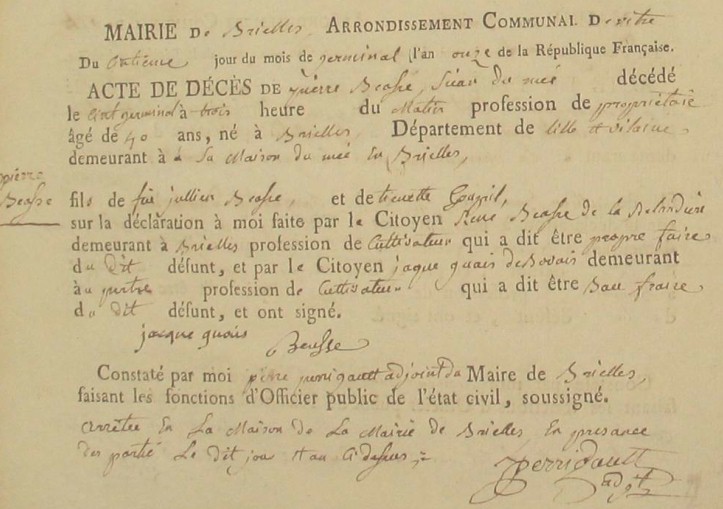 MAIRIE De Brielles, ARRONDISSEMENT COMMUNAL De vitré
Du onzieme jour du mois de germinal l'an onze de la République Française.
ACTE DE DÉCÈS DE pierre Beasse, Sieur du meé décédé
le germinal à trois heure du Matin profession de propriétaire
âgé de 40 ans, né à Brielles, Département de Lille & vilaine,
demeurant à à Sa Maison du meé En Brielles,
pierre
Beasse
fils de feu jullien Beasse, et de
sur la déclaration à moi faite par le Citoyen René Beasse de la
demeurant à Brielles profession de Cultivateur qui a dit être propre fraire
du Dit défunt, et par le Citoyen jaque guais demeurant
au profession de Cultivateur qui a dit être Bau fraire
du dit défunt, et ont signé.
jacque guais
Beasse
Constaté par moi pierre perrigault adjoint du Maire de Brielles,
faisant les fonctions d'Officier public de l'état civil, soussigné.
arrêtée En La Maison de La Mairie de Brielles En presance
des partie Le Dit jour & an Ci dessus
perrigault
adjt